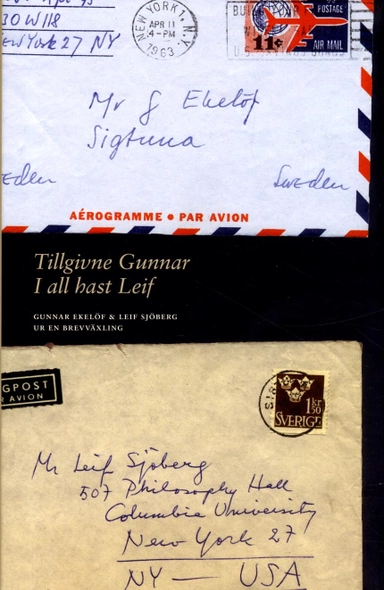 30 W 118
New York 27 NY
NEW YORK 1, N.Y.
APR 11
4-PM
1963
POSTAGE
11¢
AIR MAIL
Mr G Ekelöf
Sigtuna
eden
Sweden
AÉROGRAMME • PAR AVION
Tillgivne Gunnar
I all hast Leif
GUNNAR EKELÖF & LEIF SJÖBERG
UR EN BREVVÄXLING
GPOST
AVION
1 kr 50
SVERIGE
Mr Leif Sjöberg
507 Philosophy Hall
Columbia University
New York 27
NY — USA